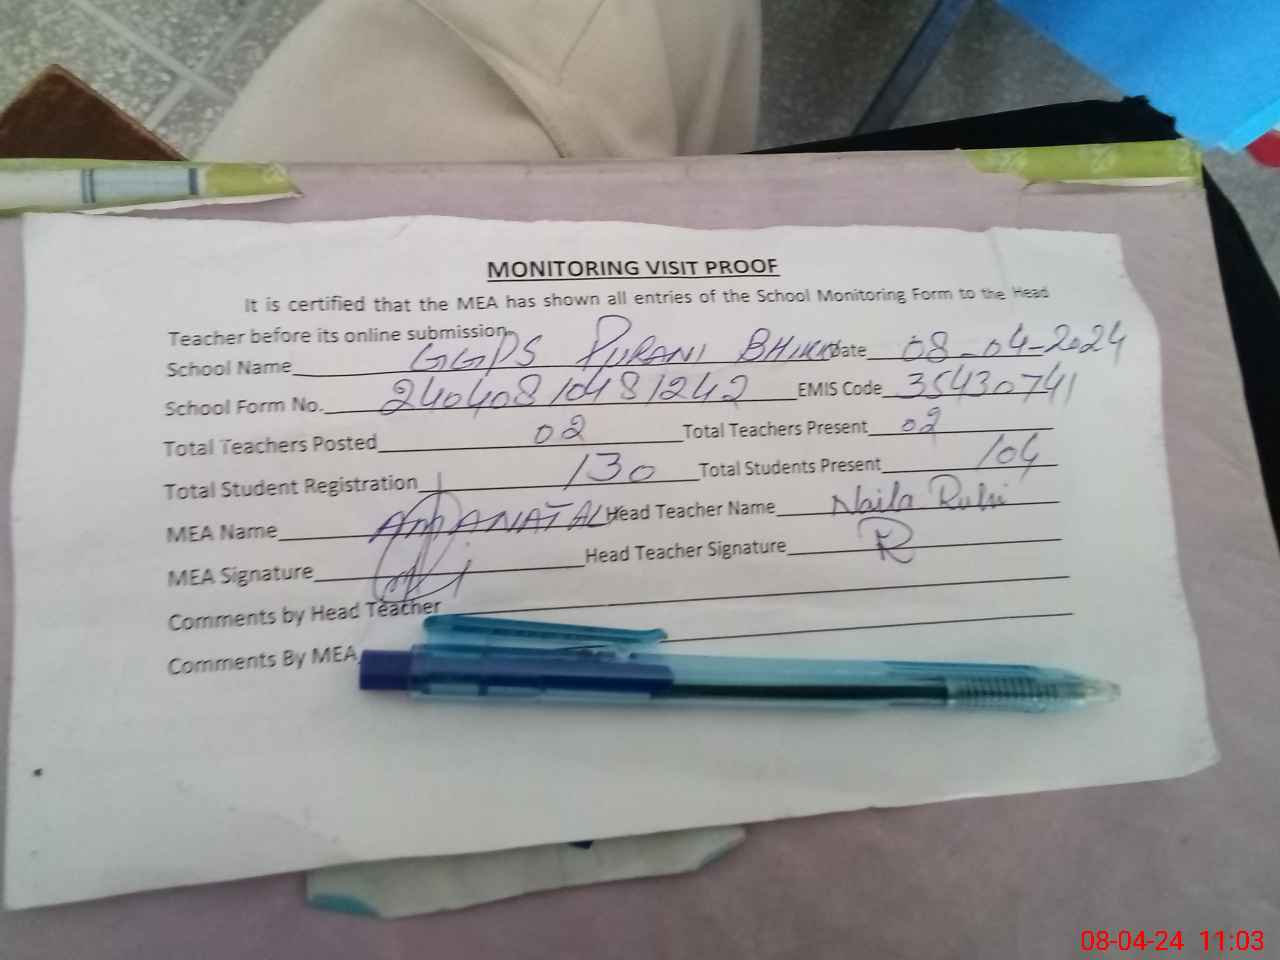 MONITORING VISIT PROOF
It is certified that the MEA has shown all entries of the School Monitoring Form to the Head
Teacher before its online submission.
School Name GGPS PURANI BHIKHI Date 08-04-2024
School Form No. 24040810481242 EMIS Code 35430741
Total Teachers Posted 02 Total Teachers Present 02
Total Student Registration 130 Total Students Present 104
MEA Name AMANAT ALI Head Teacher Name Naila Ruhi
MEA Signature Head Teacher Signature R
Comments by Head Teacher
Comments By MEA
08-04-24 11:03